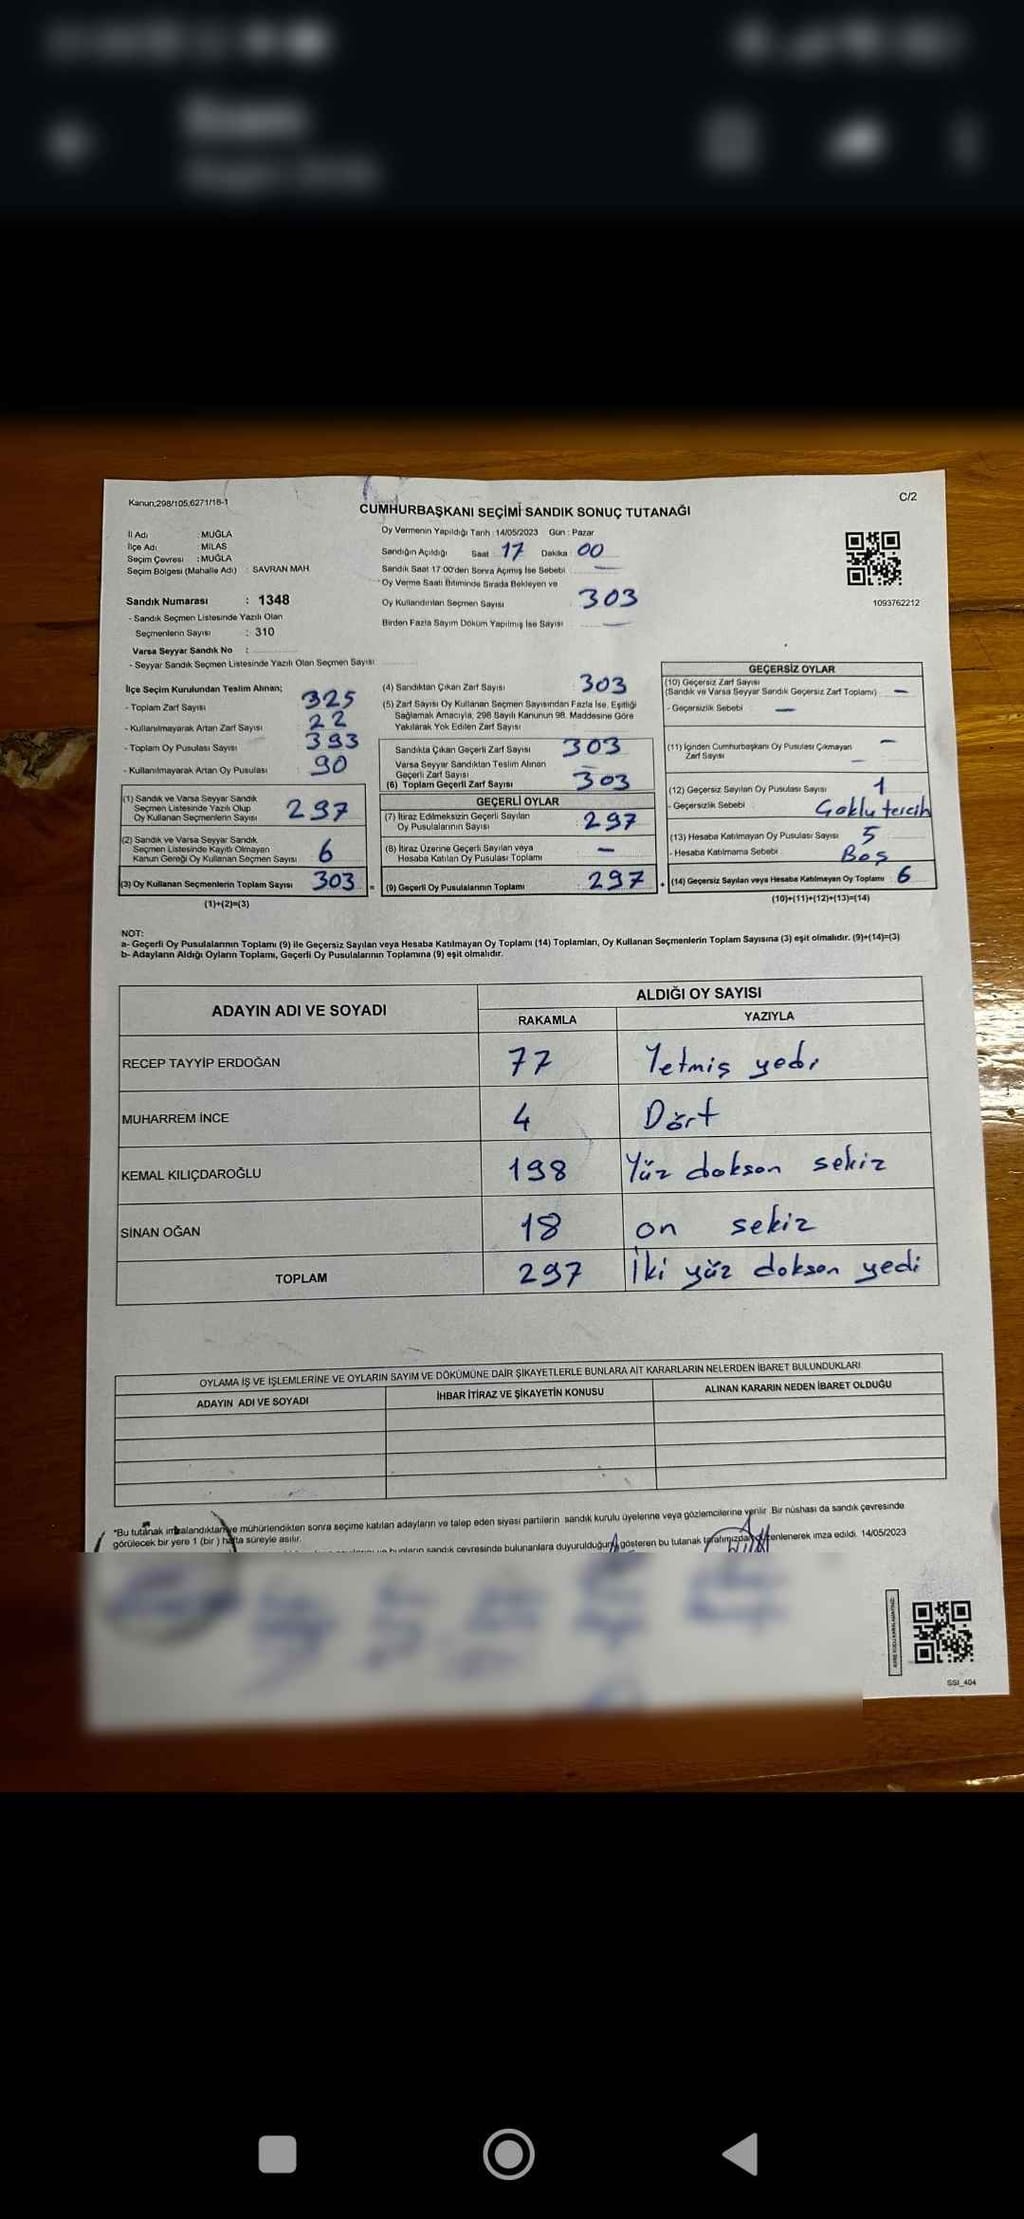 Kanun;298/105,6271/18-1
C/2
CUMHURBAŞKANI SEÇİMİ SANDIK SONUÇ TUTANAĞI
İl Adı : MUĞLA
İlçe Adı : MİLAS
Seçim Çevresi : MUĞLA
Seçim Bölgesi (Mahalle Adı) : SAVRAN MAH
Sandık Numarası : 1348
- Sandık Seçmen Listesinde Yazılı Olan
Seçmenlerin Sayısı : 310
Varsa Seyyar Sandık No :
- Seyyar Sandık Seçmen Listesinde Yazılı Olan Seçmen Sayısı:
Oy Vermenin Yapıldığı Tarih :14/05/2023 Gün : Pazar
Sandığın Açıldığı Saat : 17 Dakika : 00
Sandık Saat 17:00'den Sonra Açımış İse Sebebi : —
Oy Verme Saati Bitiminde Sırada Bekleyen ve
Oy Kullandırılan Seçmen Sayısı : 303
Birden Fazla Sayım Döküm Yapılmış İse Sayısı : —
1093762212
İlçe Seçim Kurulundan Teslim Alınan;
- Toplam Zarf Sayısı 325
- Kullanılmayarak Artan Zarf Sayısı 22
- Toplam Oy Pusulası Sayısı 393
- Kullanılmayarak Artan Oy Pusulası 90
(1) Sandık ve Varsa Seyyar Sandık
Seçmen Listesinde Yazılı Olup
Oy Kullanan Seçmenlerin Sayısı 297
(2) Sandık ve Varsa Seyyar Sandık
Seçmen Listesinde Kayıtlı Olmayan
Kanun Gereği Oy Kullanan Seçmen Sayısı 6
(3) Oy Kullanan Seçmenlerin Toplam Sayısı 303 =
(1)+(2)=(3)
(4) Sandıktan Çıkan Zarf Sayısı 303
(5) Zarf Sayısı Oy Kullanan Seçmen Sayısından Fazla İse, Eşitliği
Sağlamak Amacıyla, 298 Sayılı Kanunun 98. Maddesine Göre
Yakılarak Yok Edilen Zarf Sayısı —
Sandıkta Çıkan Geçerli Zarf Sayısı 303
Varsa Seyyar Sandıktan Teslim Alınan
Geçerli Zarf Sayısı —
(6) Toplam Geçerli Zarf Sayısı 303
GEÇERLİ OYLAR
(7) İtiraz Edilmeksizin Geçerli Sayılan
Oy Pusulalarının Sayısı : 297
(8) İtiraz Üzerine Geçerli Sayılan veya
Hesaba Katılan Oy Pusulası Toplamı —
(9) Geçerli Oy Pusulalarının Toplamı : 297 +
GEÇERSİZ OYLAR
(10) Geçersiz Zarf Sayısı
(Sandık ve Varsa Seyyar Sandık Geçersiz Zarf Toplamı) —
- Geçersizlik Sebebi —
(11) İçinden Cumhurbaşkanı Oy Pusulası Çıkmayan
Zarf Sayısı —
(12) Geçersiz Sayılan Oy Pusulası Sayısı 1
- Geçersizlik Sebebi : Çoklu tercih
(13) Hesaba Katılmayan Oy Pusulası Sayısı 5
- Hesaba Katılmama Sebebi : Boş
(14) Geçersiz Sayılan veya Hesaba Katılmayan Oy Toplamı : 6
(10)+(11)+(12)+(13)=(14)
NOT:
a- Geçerli Oy Pusulalarının Toplamı (9) ile Geçersiz Sayılan veya Hesaba Katılmayan Oy Toplamı (14) Toplamları, Oy Kullanan Seçmenlerin Toplam Sayısına (3) eşit olmalıdır. (9)+(14)=(3)
b- Adayların Aldığı Oyların Toplamı, Geçerli Oy Pusulalarının Toplamına (9) eşit olmalıdır.
ADAYIN ADI VE SOYADI
ALDIĞI OY SAYISI
RAKAMLA YAZIYLA
RECEP TAYYİP ERDOĞAN 77 Yetmiş yedi
MUHARREM İNCE 4 Dört
KEMAL KILIÇDAROĞLU 198 Yüz doksan sekiz
SİNAN OĞAN 18 on sekiz
TOPLAM 297 İki yüz doksan yedi
OYLAMA İŞ VE İŞLEMLERİNE VE OYLARIN SAYIM VE DÖKÜMÜNE DAİR ŞİKAYETLERLE BUNLARA AİT KARARLARIN NELERDEN İBARET BULUNDUKLARI
ADAYIN ADI VE SOYADI İHBAR İTİRAZ VE ŞİKAYETİN KONUSU ALINAN KARARIN NEDEN İBARET OLDUĞU
*Bu tutanak imzalandıktan ve mühürlendikten sonra seçime katılan adayların ve talep eden siyasi partilerin sandık kurulu üyelerine veya gözlemcilerine verilir. Bir nüshası da sandık çevresinde
görülecek bir yere 1 (bir ) hafta süreyle asılır.
bunların sandık çevresinde bulunanlara duyurulduğunu gösteren bu tutanak tarafımızdan düzenlenerek imza edildi. 14/05/2023
SSI_404